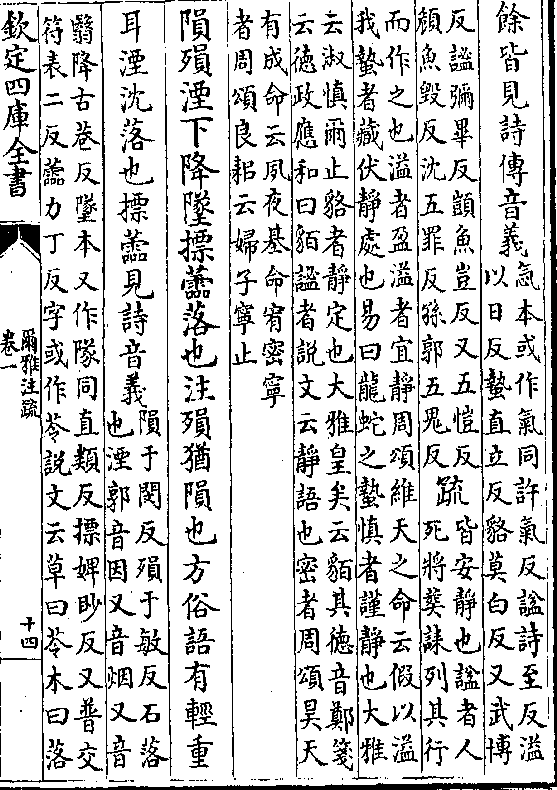 餘皆見詩傳音義
忥本或作氣同許氣反謚詩至反溢
以日反蟄直立反貉莫白反又武博
反謐彌畢反顗魚豈反又五愷反
頠魚毀反沈五罪反孫郭五鬼反
疏
皆安靜也謚者人
死將葬誄列其行
而作之也溢者盈溢者宜靜周頌維天之命云假以溢
我蟄者藏伏靜處也易曰龍蛇之蟄慎者謹靜也大雅
云淑慎爾止貉者靜定也大雅皇矣云貊其德音鄭箋
云德政應和曰貊謐者說文云靜語也密者周頌昊天
有成命云夙夜基命宥密寧
者周頌良耜云婦子寧止
隕殞湮下降墜摽蘦落也注殞猶隕也方俗語有輕重
耳湮沈落也摽蘦見詩音義
隕于閔反殞于敏反石落
也湮郭音因又音烟又音
翳降古巷反墜本又作隊同直類反摽婢眇反又普交
符表二反蘦力丁反字或作苓說文云草曰苓木曰落
欽定四庫全書
爾雅注疏
卷一
十四